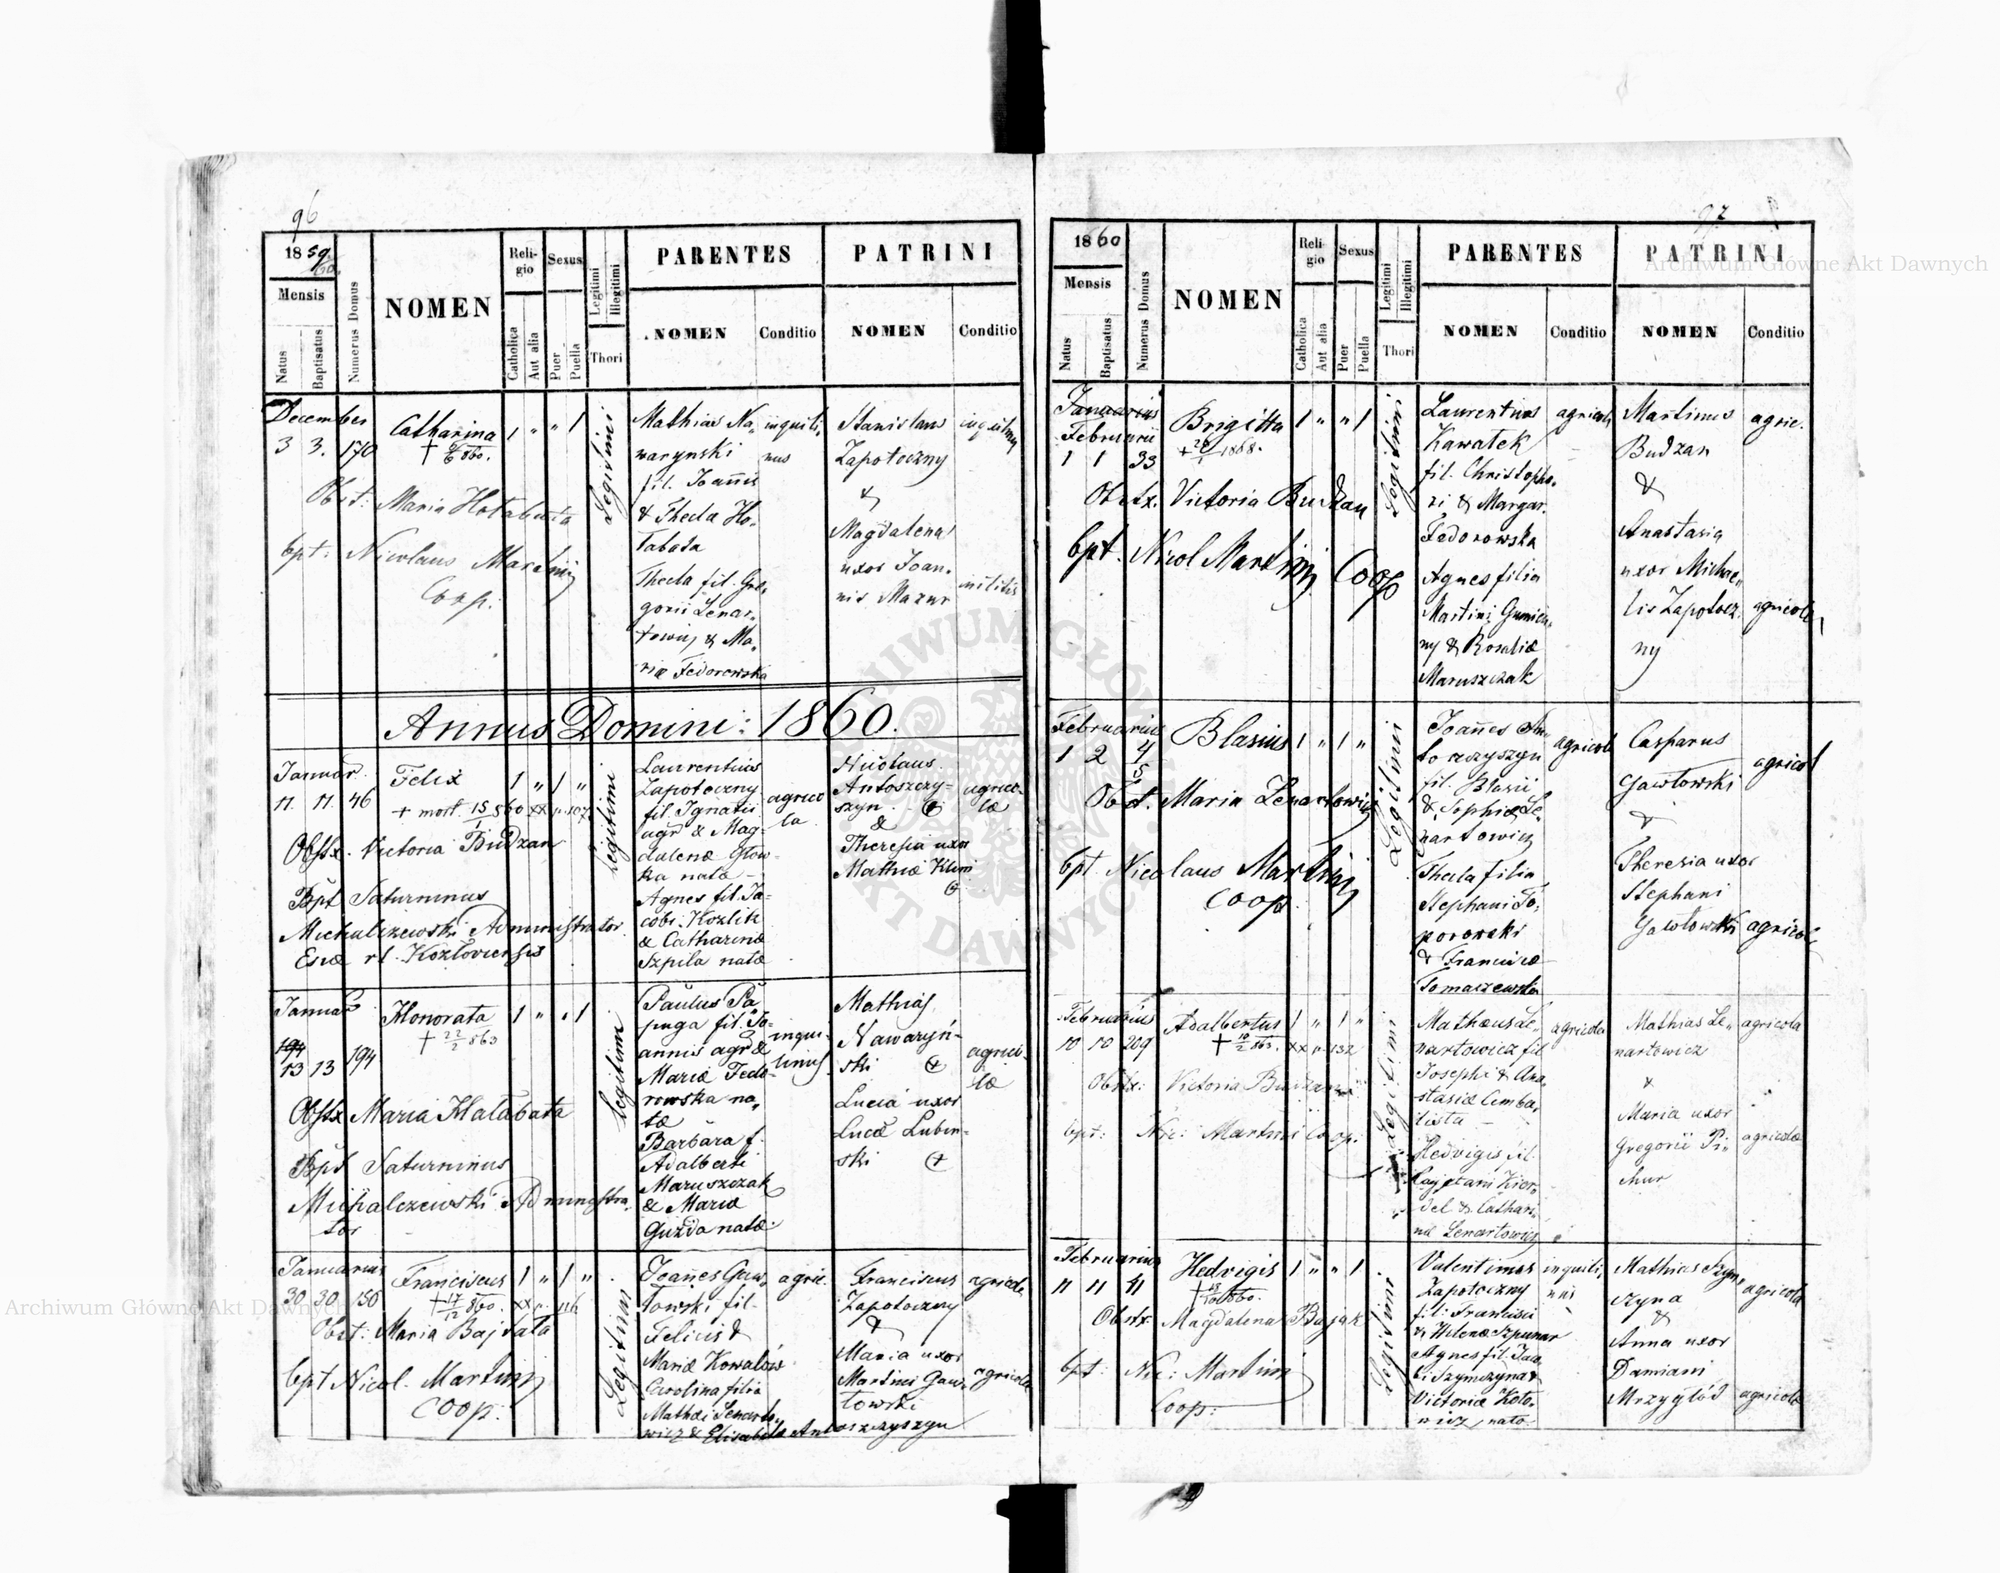 96
1859.
60.
Mensis
Natus
Baptisatus
Numerus Domus
NOMEN
Reli-
gio
Catholica
Aut alia
Sexus
Puer
Puella
Legitimi
Illegitimi
Thori
PARENTES
NOMEN
Conditio
PATRINI
NOMEN
Conditio
December
3 3. 170
Catharina
1 " " 1
Obst: Maria Hotabuta
bpt: Nicolaus Martini
Coop.
Legitimi
Mathias Na
warynski
fil. Joannis
& Thecla Ho-
tabata
Thecla fil. Gre-
gorii Lenar-
towicz & Ma-
riæ Fedorowska
inquili-
nus
Stanislaus
Zapotoczny
&
Magdalena
uxor Joan-
nis Mazur
inquilinus
militis
Annus Domini: 1860.
Januar.
11. 11. 46
Felix
1 " 1 "
+ mort. 15/1 860 xx n. 107
Obstx. Victoria Budzan
Bpt Saturninus
Michalczewski Administrator
Eccæ rl. Kozłoviensis
legitimi
Laurentius
Zapotoczny
fil. Ignatii
agr & Mag-
dalenæ Głow-
ska natæ
Agnes fil. Ja-
cobi Kozlik
& Catharinæ
Szpila natæ
agrico
la
Nicolaus
Antoszczy-
szyn +
&
Theresia uxor
Mathiæ Klim
+
agrico-
læ
Januar
194
13 13 194
Honorata
+ 22/2 863
1 " " 1
Obstx Maria Hałabata
Bpt Saturninus
Michalczewski Administra
tor
legitimi
Paulus Pa
puga fil. Jo-
annis agr &
Mariæ Fedo-
rowska na-
tæ
Barbara f.
Adalberti
Maruszczak
& Mariæ
Guzda natæ
inqui-
linus
Mathias
Nawaryń-
ski +
Lucia uxor
Lucæ Lubin-
ski +
agrico-
læ
Januarius
30 30 156
Franciscus
+ 17/12 860. xx n. 116
1 " 1 "
Obst: Maria Bajtała
bpt Nicol. Martini
Coop.
Legitimi
Joannes Gaw-
łowski fil.
Felicis &
Mariæ Kowalów
Carolina filia
Mathæi Lenarto-
wicz & Elisabetæ Antoszczyszyn
agric.
Franciscus
Zapotoczny
&
Maria uxor
Martini Gaw-
łowski
agricola
agricola
97
1860
Mensis
Natus
Baptisatus
Numerus Domus
NOMEN
Reli-
gio
Catholica
Aut alia
Sexus
Puer
Puella
Legitimi
Illegitimi
Thori
PARENTES
NOMEN
Conditio
PATRINI
NOMEN
Conditio
Januarius
Februarii
1 1 33
Brigitta
1 " " 1
Obstx. Victoria Budzan
bpt. Nicol Martini Coop
Legitimi
Laurentius
Kawatek
fil. Christopho-
ri & Margar.
Fedorowska
Agnes filia
Martini Gumien-
ny & Rosaliæ
Maruszczak
agricola
Martinus
Budzan
&
Anastasia
uxor Michae-
lis Zapotocz-
ny
agric.
agricola
Februarius
1 2 45
Blasius
1 " 1 "
Obst. Maria Lenartowicz
bpt Nicolaus Martini
Coop.
Legitimi
Joannes An-
toszczyszyn
fil. Blasii
& Sophiæ Le-
nartowicz
Thecla filia
Stephani To-
porowski
& Franciscæ
Tomaszewska
agricola
Casparus
Gawłowski
&
Theresia uxor
Stephani
Gawłowski
agricol
agricola
Februarius
10 10 209
Adalbertus
+ 10/2 863. xx n 132
1 " 1 "
Obstx: Victoria Budzan
bpt: Nic: Martini Coop.
Legitimi
Mathæus Le-
nartowicz fil
Josephi & Ana-
stasiæ Cimba-
lista
Hedvigis fil.
Cajetani Kier-
del & Cathari-
næ Lenartowicz
agricola
Mathias Le-
nartowicz
&
Maria uxor
Gregorii Pi-
chur
agricola
agricola
Februarius
11 11 11
Hedvigis
1 " " 1
Obstx Magdalena Bajak
bpt: Nic: Martini
Coop:
Legitimi
Valentinus
Zapotoczny
fil: Francisci
& Helenæ Szpunar
Agnes fil. Jaco-
bi Szymczyna &
Victoriæ Koto-
wicz nata
inquili-
nus
Mathias Szym-
czyna
&
Anna uxor
Damiani
Mrzygłód
agricola
agricola
Archiwum Główne Akt Dawnych
Archiwum Główne Akt Dawnych
ARCHIWUM GŁÓWNE AKT DAWNYCH